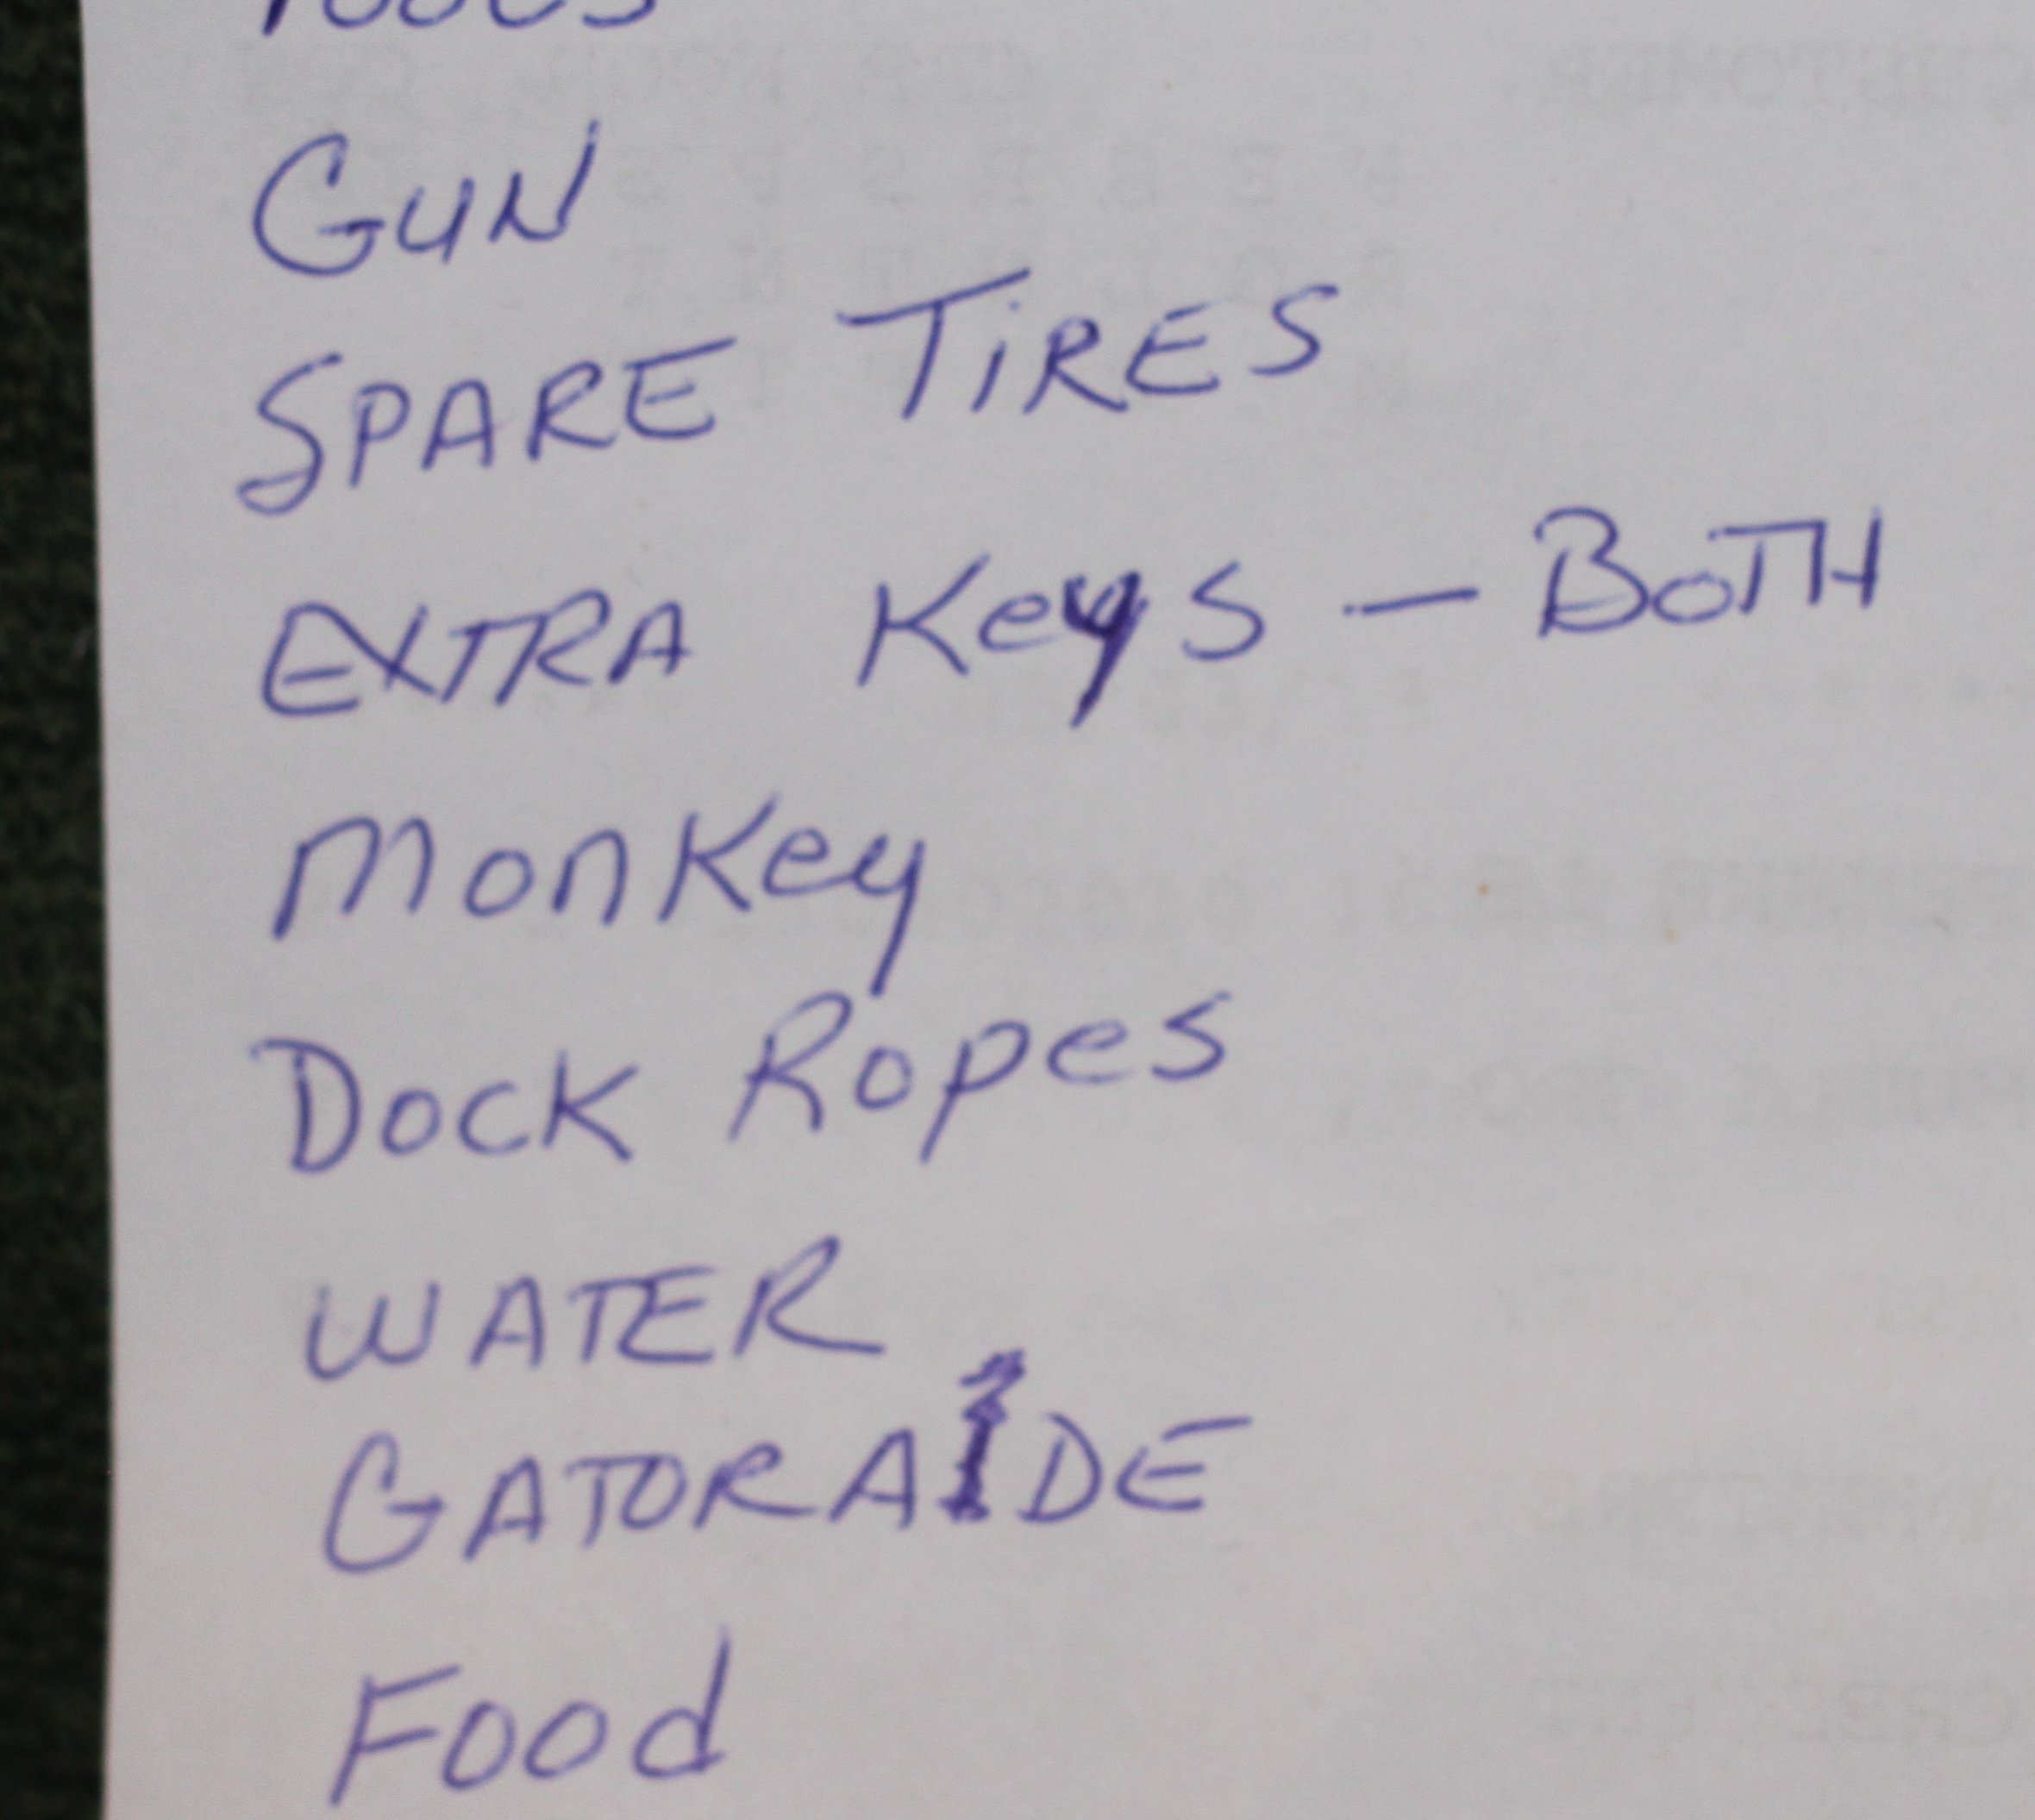 GUN
SPARE TIRES
EXTRA Keys - BOTH
MonKey
Dock Ropes
WATER
GATORADE
Food